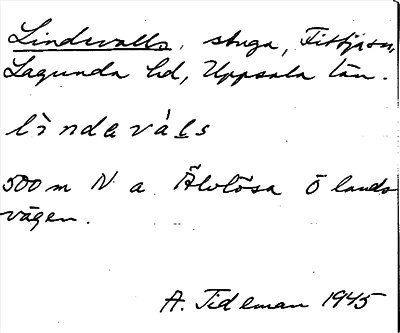 Lindevalls, stuga, Fittja sn,
Lagunda hd, Uppsala län.
lìndaváls
500 m N a Älvlösa Ö lands
vägen.
A. Tideman 1945